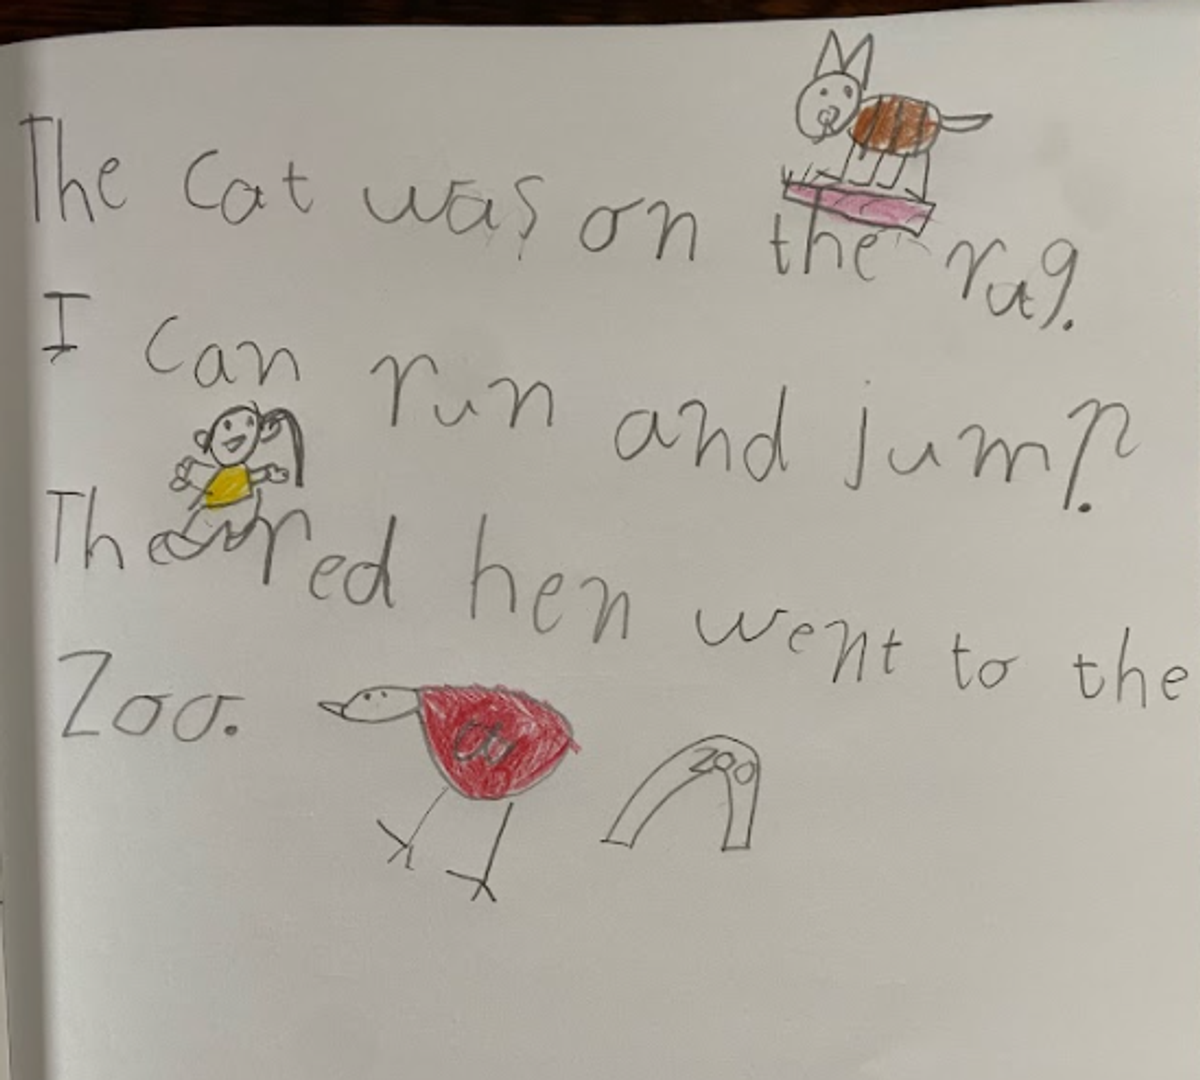 The cat was on the rug.
I can run and jump.
The red hen went to the
Zoo.
ZOO